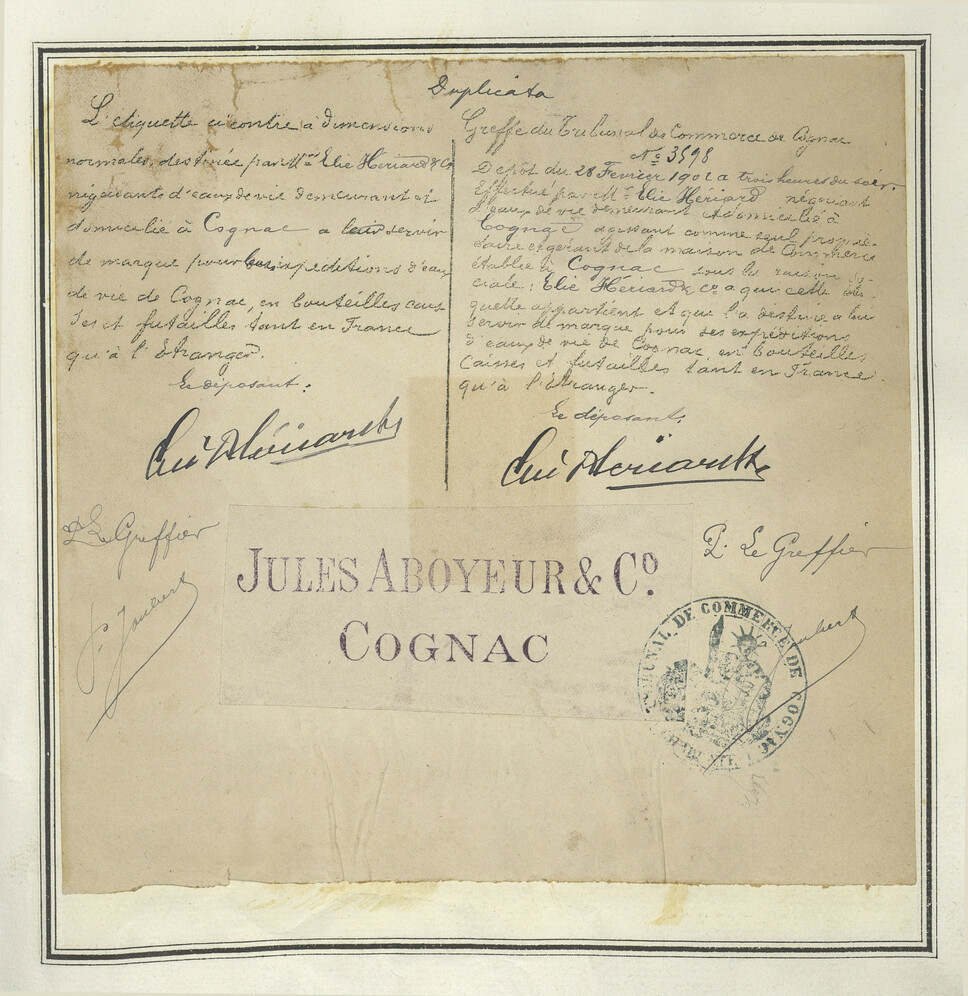 Duplicata
L'étiquette ci contre à dimensions
normales, destinée par Mr Elie Hériard & Co
négociants d'eaux de vie demeurant et
domicilié à Cognac a servir
de marque pour expéditions d'eau
de vie de Cognac, en bouteilles cais
ses et futailles tant en France
qu'à l'Etranger.
Le déposant:
Elie Hériard & Co
P. Le Greffier
Joubert
Greffe du Tribunal de Commerce de Cognac
No 3598
Dépôt du 28 Fevrier 1902 a trois heures du soir.
Effectué par Mr Elie Hériard négociant
d'eaux de vie demeurant et domicilié à
Cognac agissant comme seul proprié-
taire et gérant de la maison de Commerce
établie à Cognac sous la raison so-
ciale: Elie Hériard & Co a qui cette éti-
quette appartient et que l'a destine a lui
servir de marque pour ses expéditions
d'eaux de vie de Cognac, en bouteilles
Caisses et futailles tant en France
qu'à l'étranger.
Le déposant,
Elie Hériard & Co
P. Le Greffier
Joubert
JULES ABOYEUR & Co.
COGNAC
TRIBUNAL DE COMMERCE DE COGNAC